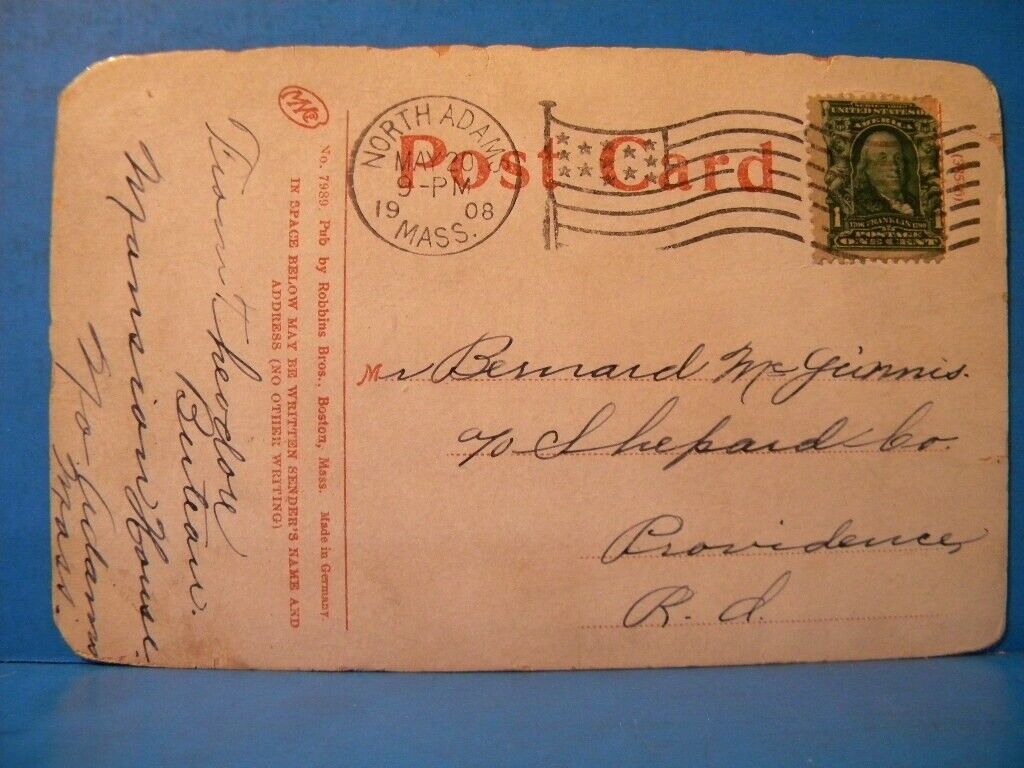 NORTH ADAMS
MAY 20
9-PM
19 08
MASS.
Post Card
UNITED STATES OF
AMERICA
FRANKLIN
POSTAGE
1 ONE CENT 1
Mr Bernard McGinnis.
c/o Shepard Co.
Providence,
R. I.
No. 7989. Pub by Robbins Bros., Boston, Mass. Made in Germany.
IN SPACE BELOW MAY BE WRITTEN SENDER'S NAME AND
ADDRESS (NO OTHER WRITING)
From Theodore
Buteau.
Mansion House.
No Adams
Mass.